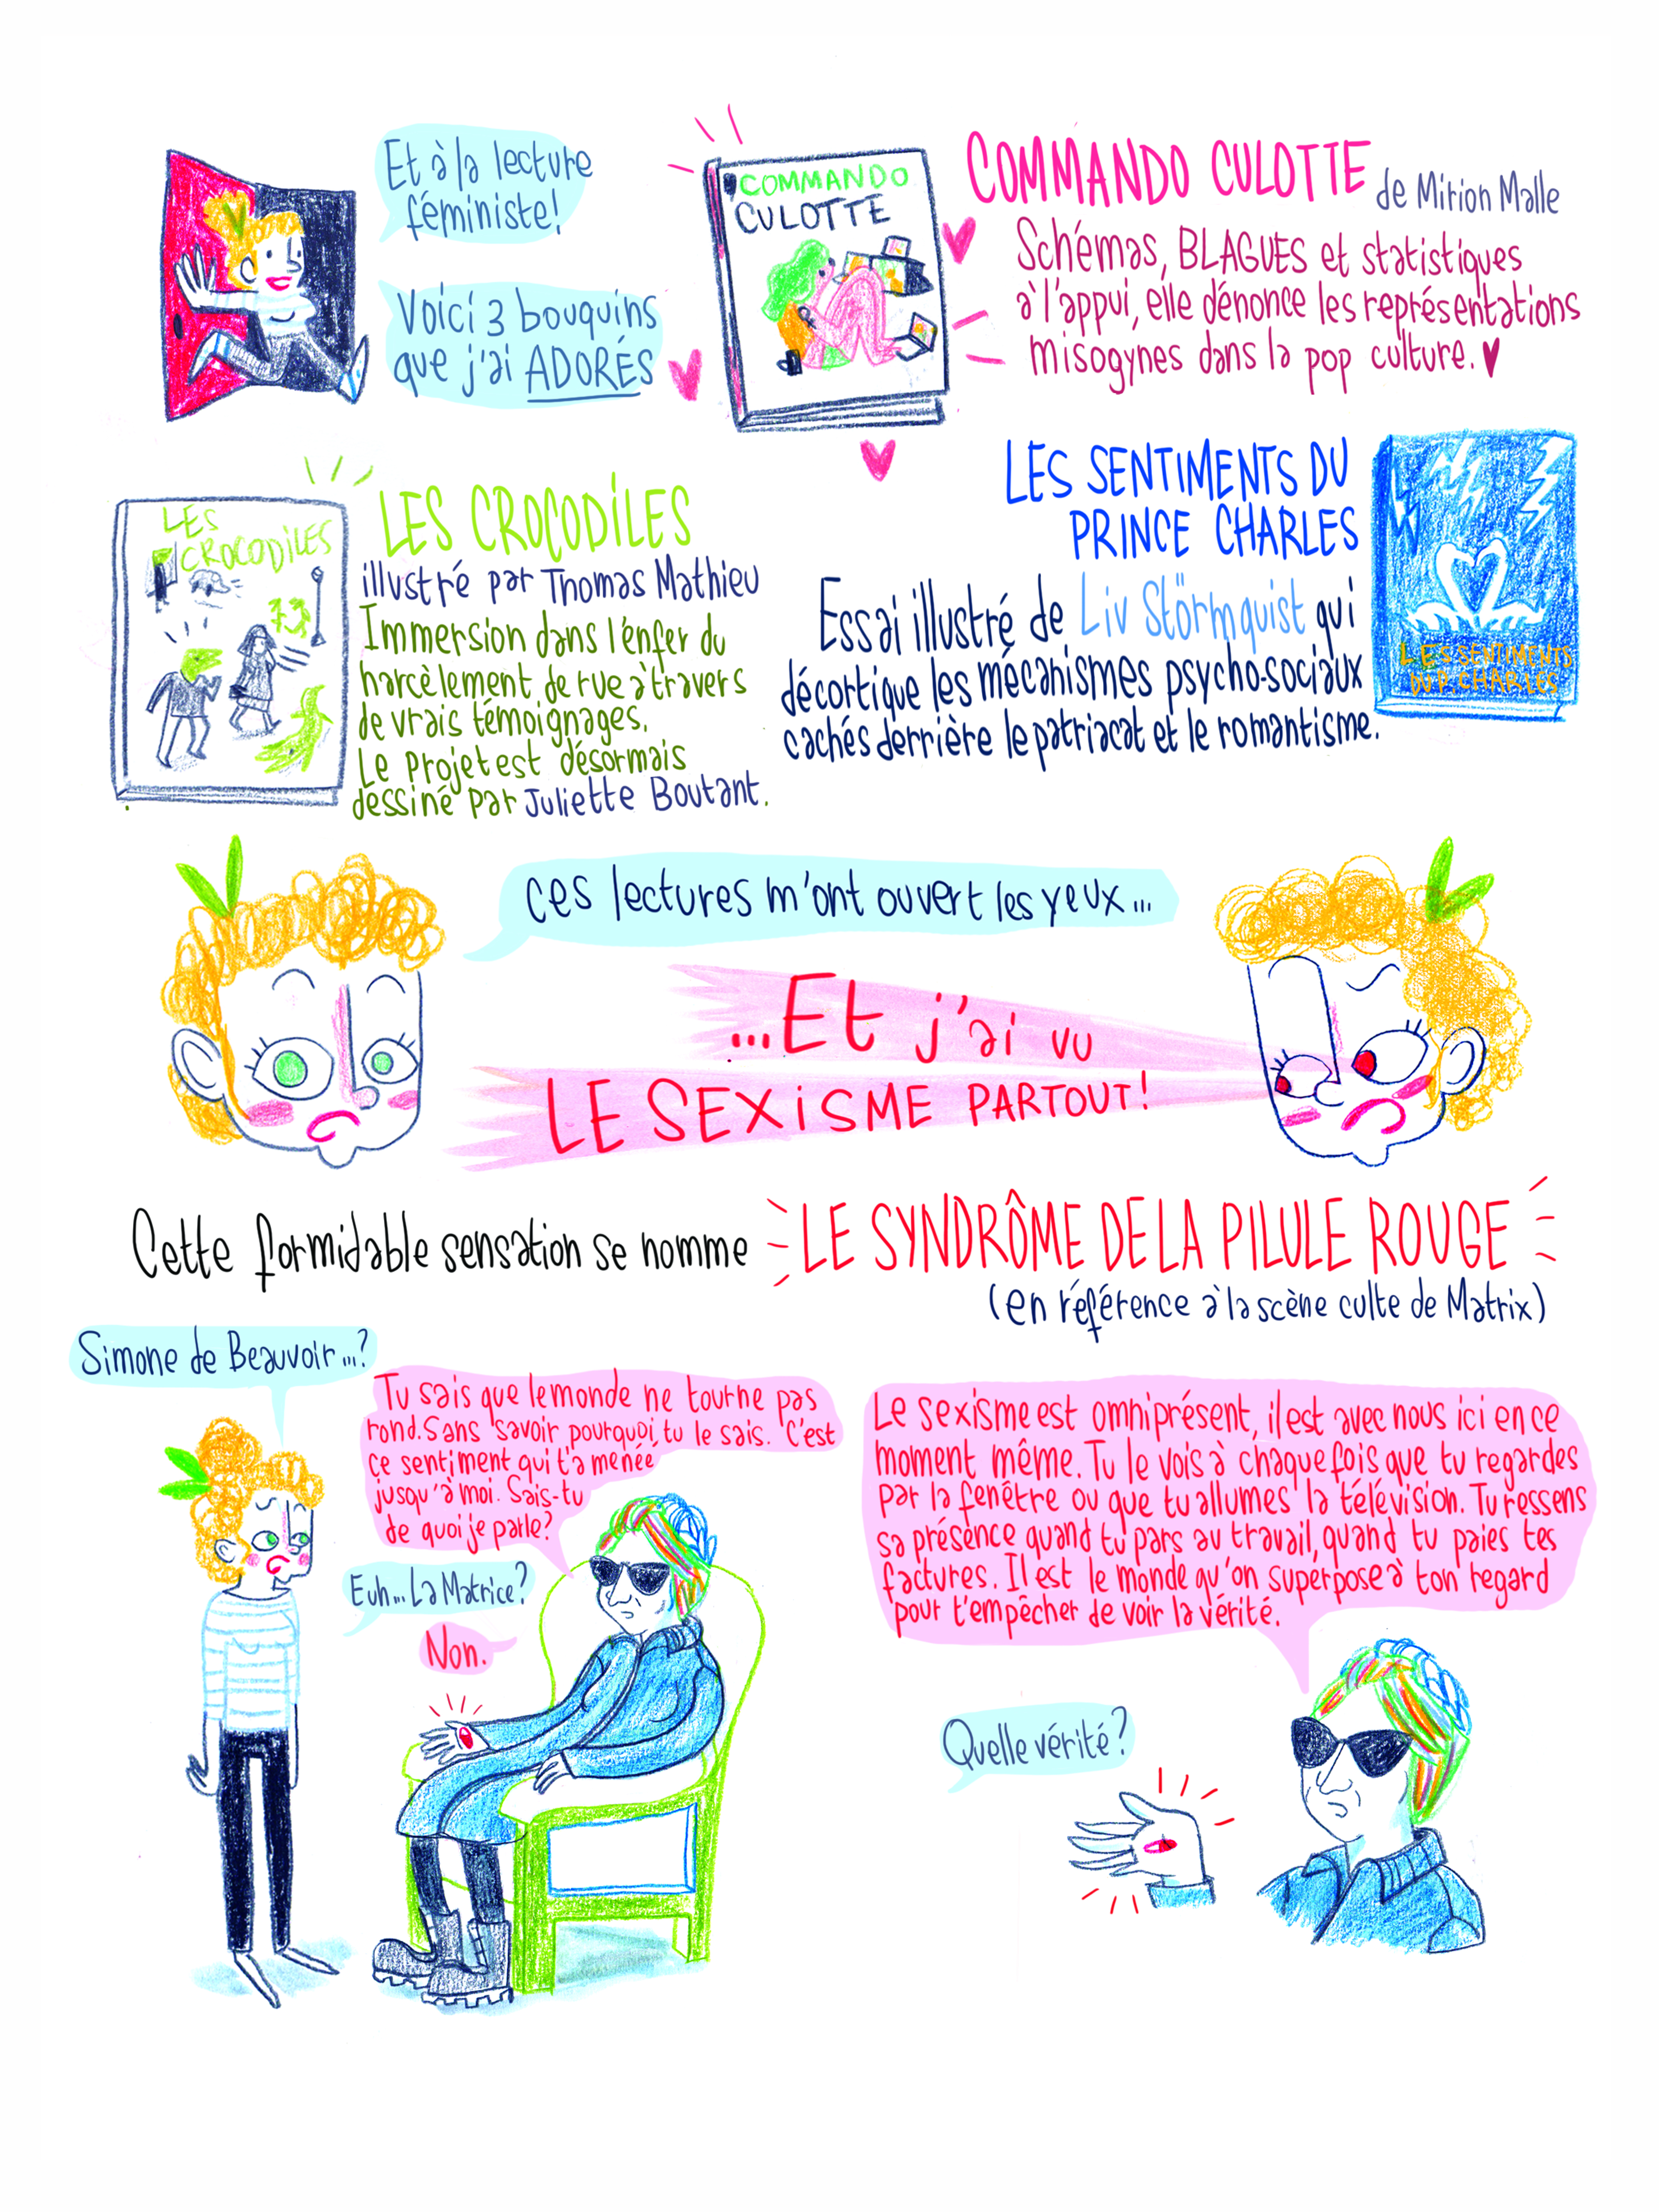 Et à la lecture
féministe!
Voici 3 bouquins
que j'ai ADORÉS
COMMANDO
CULOTTE
COMMANDO CULOTTE de Mirion Malle
Schémas, BLAGUES et statistiques
à l'appui, elle dénonce les représentations
misogynes dans la pop culture.
LES
CROCODILES
LES CROCODILES
illustré par Thomas Mathieu
Immersion dans l'enfer du
harcèlement de rue à travers
de vrais témoignages.
Le projet est désormais
dessiné par Juliette Boutant.
LES SENTIMENTS DU
PRINCE CHARLES
Essai illustré de Liv Störmquist qui
décortique les mécanismes psycho-sociaux
cachés derrière le patriacat et le romantisme.
LES SENTIMENTS
DU P. CHARLES
Ces lectures m'ont ouvert les yeux...
...Et j'ai vu
LE SEXISME PARTOUT!
Cette formidable sensation se nomme LE SYNDRÔME DE LA PILULE ROUGE
(en référence à la scène culte de Matrix)
Simone de Beauvoir...?
Tu sais que le monde ne tourne pas
rond. Sans savoir pourquoi, tu le sais. C'est
ce sentiment qui t'a menée
jusqu'à moi. Sais-tu
de quoi je parle?
Euh... La Matrice?
Non.
Le sexisme est omniprésent, il est avec nous ici en ce
moment même. Tu le vois à chaque fois que tu regardes
par la fenêtre ou que tu allumes la télévision. Tu ressens
sa présence quand tu pars au travail, quand tu paies tes
factures. Il est le monde qu'on superpose à ton regard
pour t'empêcher de voir la vérité.
Quelle vérité?